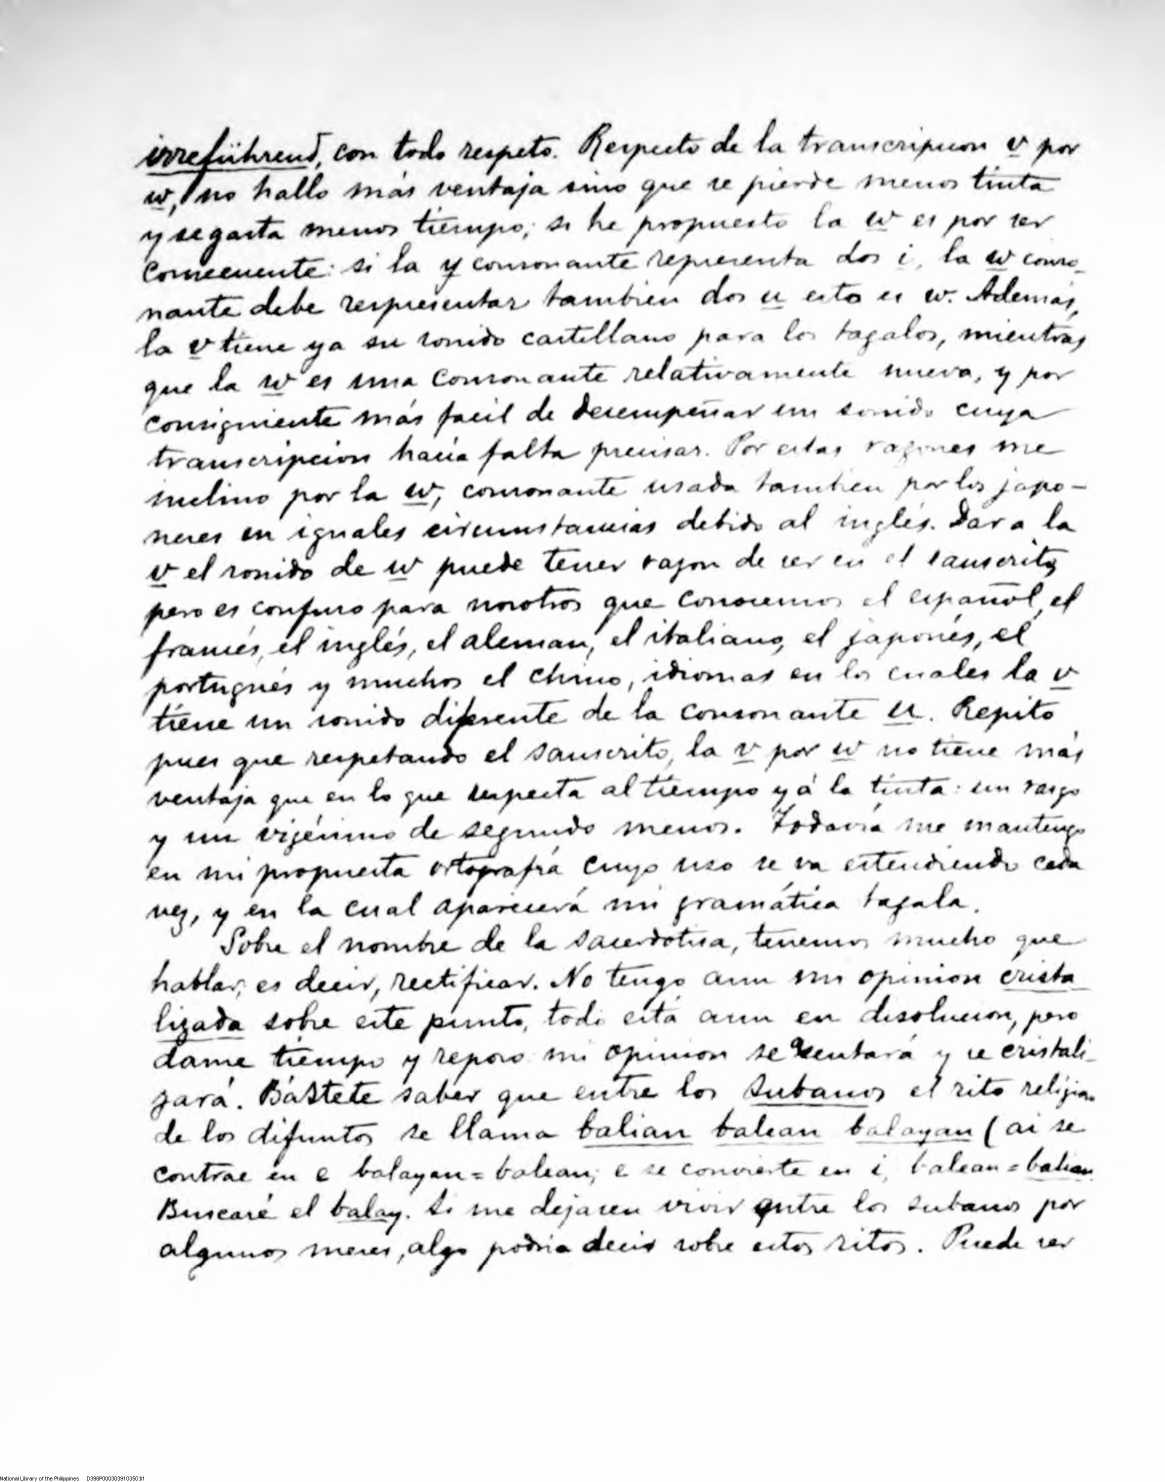 irreführend, con todo respeto. Respecto de la transcripcion v por
w, no hallo más ventaja sino que se pierde menos tinta
y se gasta menos tiempo; si he propuesto la w es por ser
consecuente: si la y consonante representa dos i, la w conso-
nante debe representar tambien dos u esto es w. Además,
la v tiene ya su sonido castellano para los tagalos, mientras
que la w es una consonante relativamente nueva, y por
consiguiente más facil de desempeñar un sonido cuya
transcripcion hacia falta precisar. Por estas razones me
inclino por la w, consonante usada tambien por los japo-
neses en iguales circunstancias debido al inglés. Dar a la
v el sonido de w puede tener razon de ser en el sanscrito,
pero es confuso para nosotros que conocemos el español, el
francés, el inglés, el aleman, el italiano, el japonés, el
portugués y muchos el chino, idiomas en los cuales la v
tiene un sonido diferente de la consonante u. Repito
pues que respetando el sanscrito, la v por w no tiene más
ventaja que en lo que respecta al tiempo y á la tinta: un rasgo
y un vigésimo de segundo menos. Todavia me mantengo
en mi propuesta ortografía cuyo uso se va estendiendo cada
vez, y en la cual aparecerá mi gramática tagala.
Sobre el nombre de la sacerdotisa, tenemos mucho que
hablar; es decir, rectificar. No tengo aun mi opinion crista
lizada sobre este punto, todo está aun en disolucion, pero
dame tiempo y reposo mi opinion se sentará y se cristali-
zará. Bástete saber que entre los subanos el rito religioso
de los difuntos se llama balian balean balayan (ai se
contrae en e balayan = balean; e se convierte en i, balean = balian
Buscaré el balay. Si me dejasen vivir entre los subanos por
algunos meses, algo podria decir sobre estos ritos. Puede ser
National Library of the Philippines D396P00030391035031